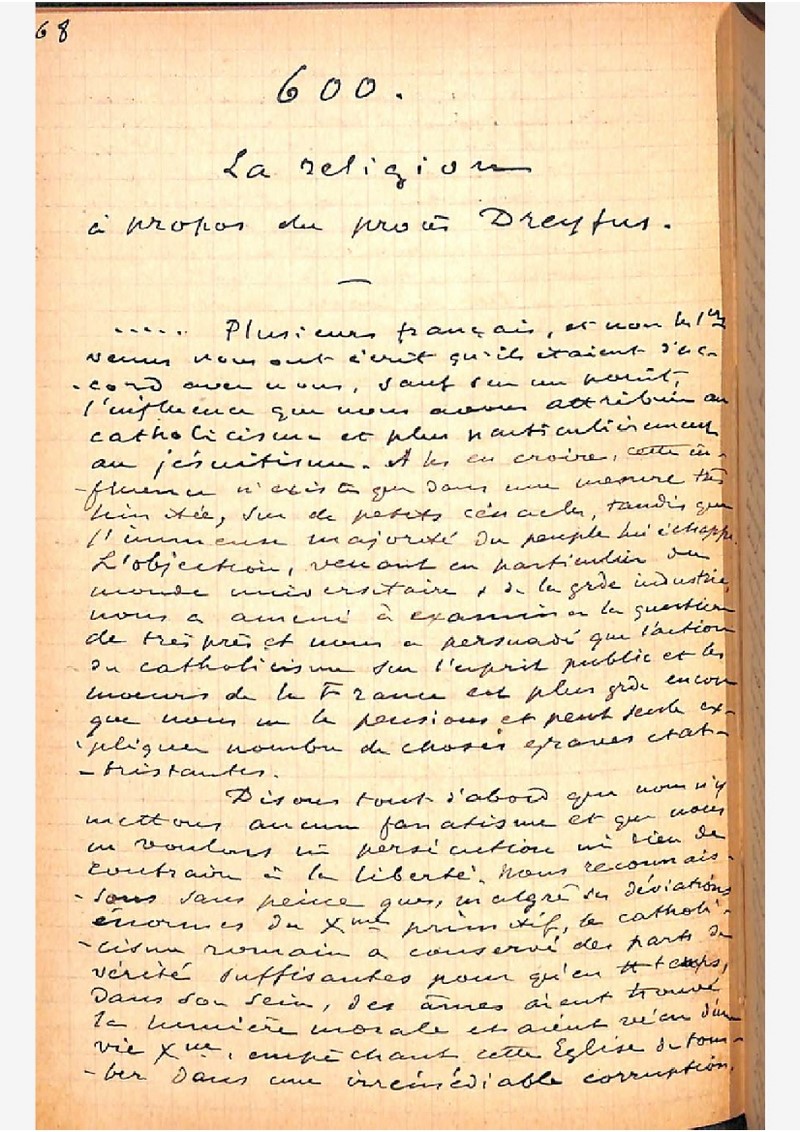 68
600.
La religion
à propos du procès Dreyfus.
..... Plusieurs français, et non les 1ers
venus nous ont écrit qu'ils étaient d'ac-
-cord avec nous, sauf sur un point,
l'influence que nous avons attribuée au
catholicisme et plus particulièrement
au jésuitisme. A les en croire, cette in-
-fluence n'existe que dans une mesure très
limitée, sur de petits cénacles, tandis que
l'immense majorité du peuple lui échappe.
L'objection, venant en particulier du
monde universitaire & de la grde industrie,
nous a amené à examiner la question
de très près et nous a persuadé que l'action
du catholicisme sur l'esprit public et les
moeurs de la France est plus grde encore
que nous ne le pensions et peut seule ex-
-pliquer nombre de choses graves et at-
-tristantes.
Disons tout d'abord que nous n'y
mettons aucun fanatisme et que nous
ne voulons ni persécution ni rien de
contraire à la liberté. Nous reconnais-
-sons sans peine que, malgré ses déviations
énormes du Xme primitif, le catholi-
-cisme romain a conservé des parts de
vérité suffisantes pour qu'en tt temps,
dans son sein, des âmes aient trouvé
la lumière morale et aient vécu d'une
vie Xnne, empêchant cette Eglise de tom-
-ber dans une irrémédiable corruption.